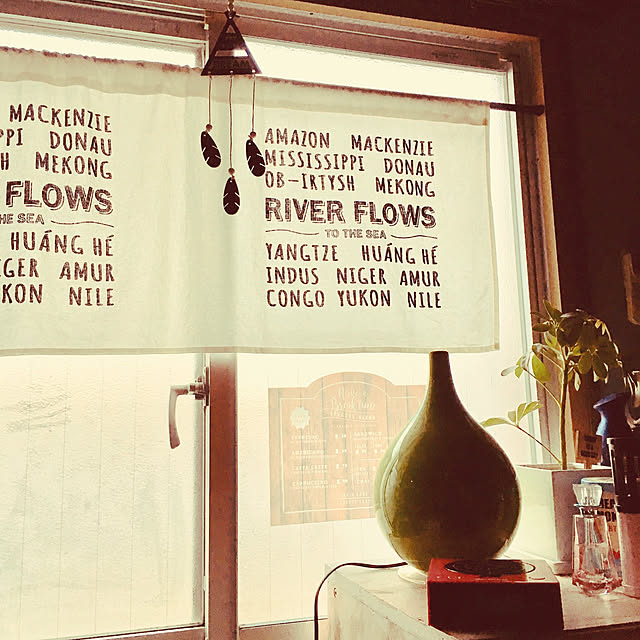 MACKENZIE
PPI DONAU
SH MEKONG
FLOWS
THE SEA
HUÁNG HÉ
NIGER AMUR
YUKON NILE
AMAZON MACKENZIE
MISSISSIPPI DONAU
OB-IRTYSH MEKONG
RIVER FLOWS
TO THE SEA
YANGTZE HUÁNG HÉ
INDUS NIGER AMUR
CONGO YUKON NILE